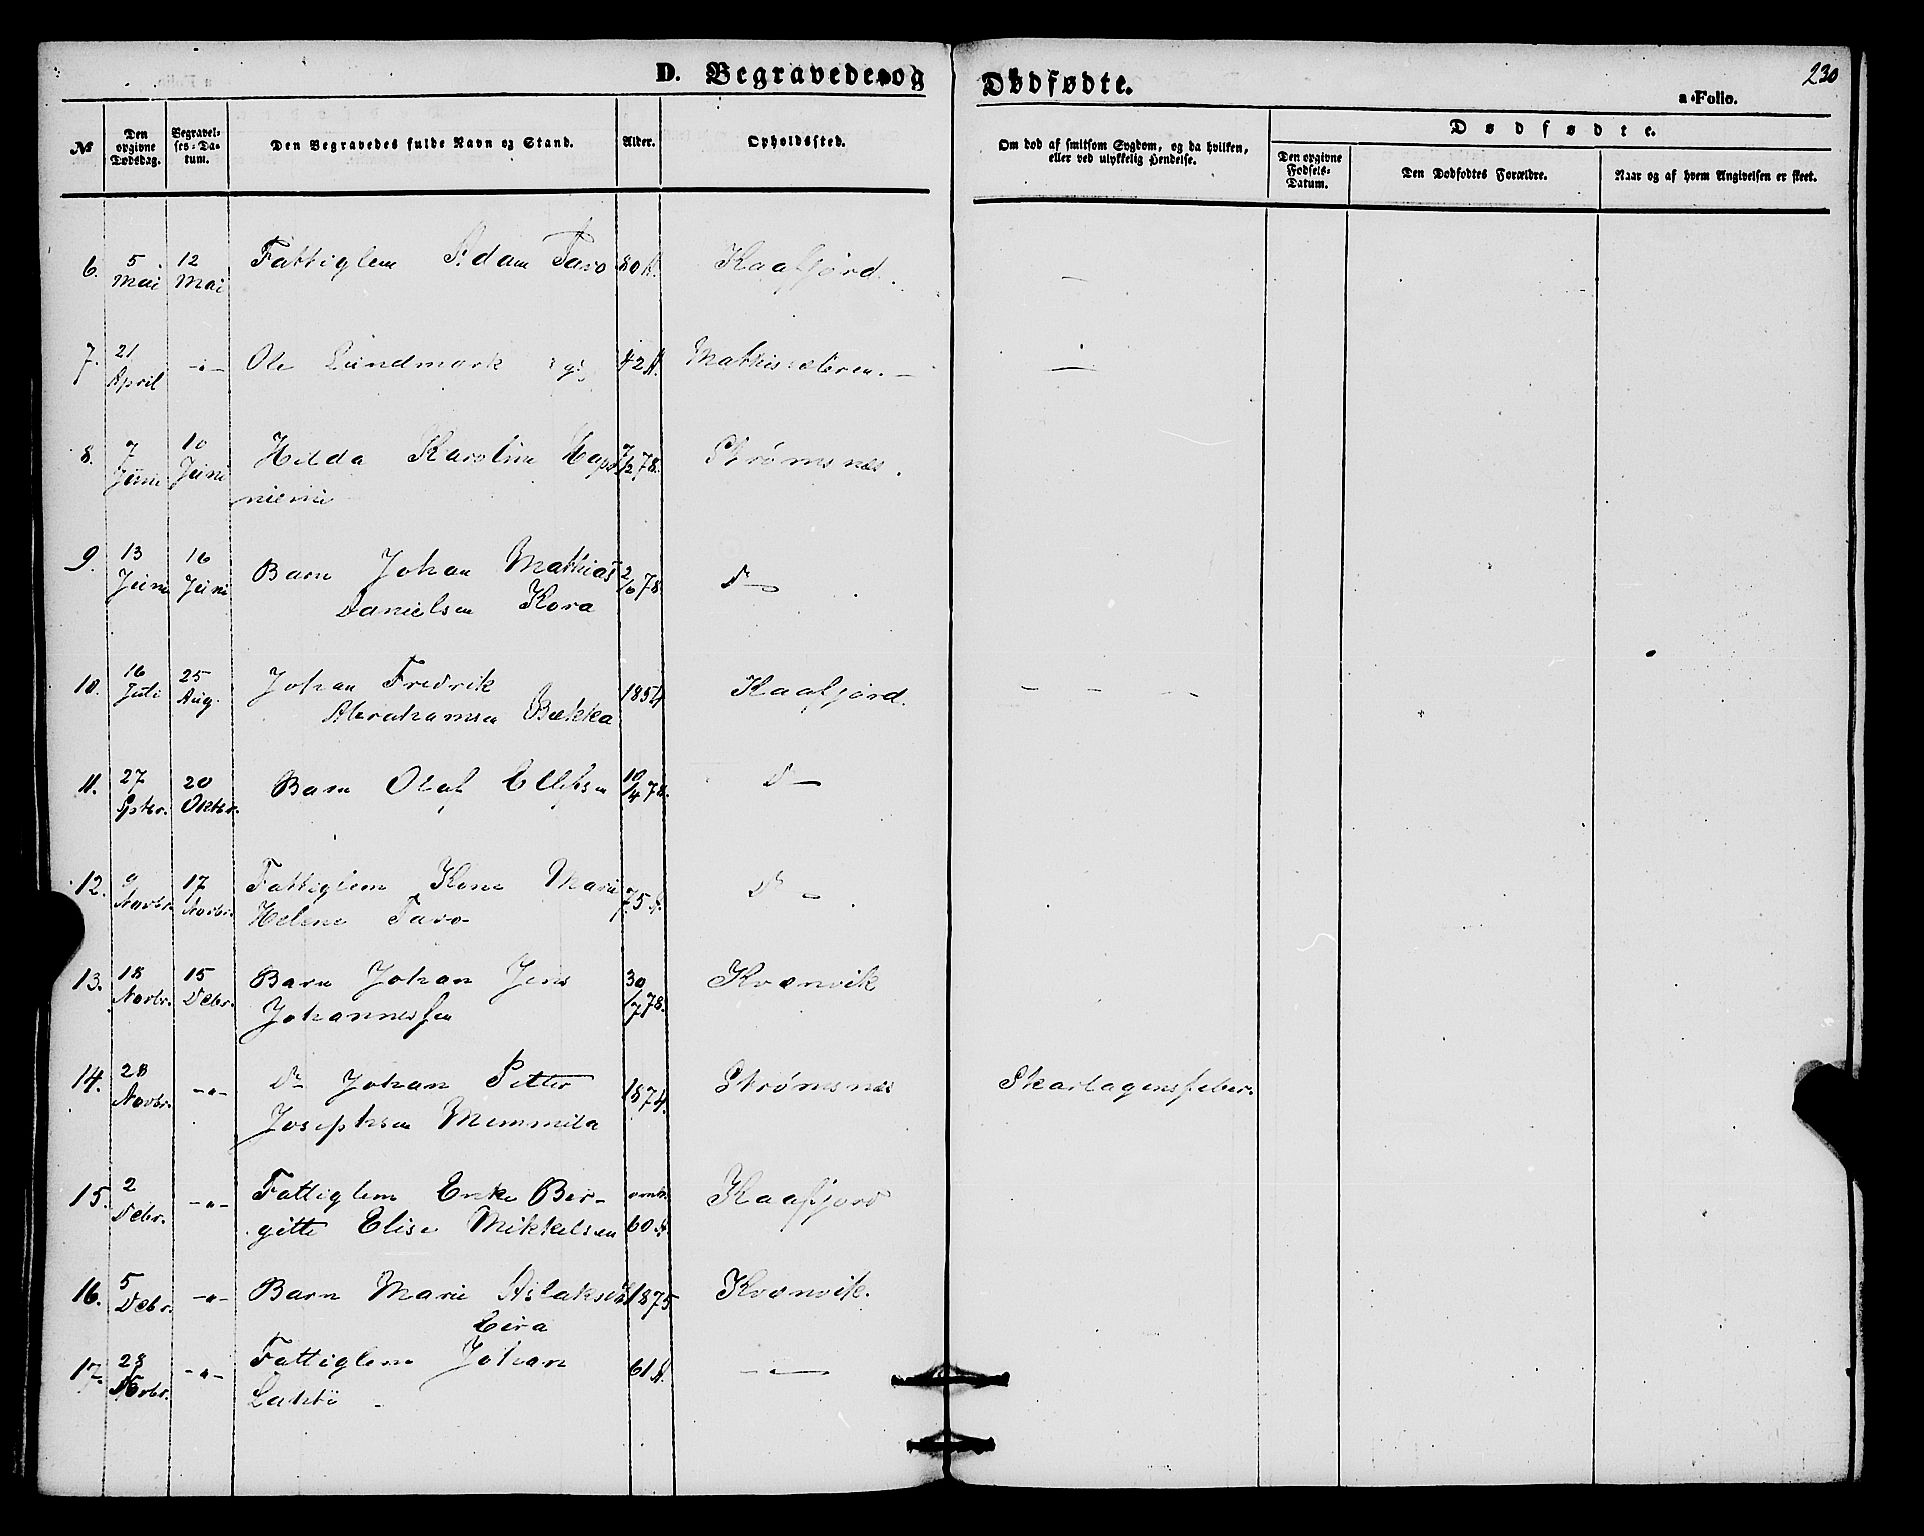 D. Begravede og Dødfødte.
230
a Folio.
№
Den opgivne Dødsdag.
Begravelses-Datum.
Den Begravedes fulde Navn og Stand.
Alder.
Opholdssted.
Om død af smitsom Sygdom, og da hvilken, eller ved ulykkelig Hendelse.
Dødfødte.
Den opgivne Fødsels-Datum.
Den Dødfødtes Forældre.
Naar og af hvem Angivelsen er skeet.
6. 5 Mai 12 Mai Fattiglem Adam Taro 80 A. Kaafjord. —
7. 21 April -"- Ole Lundmark 42 A. Mathisæleren. — —
8. 7 Juni 10 Juni Hilda Karoline 7/2 78. Strømsnes.
niemi
9. 13 Juni 16 Juni Barn Johan Mathias 2/6 78. D—
Danielsen Kora
10. 16 Juli 25 Aug. Johan Fredrik 1854 Kaafjord. — — —
Abrahamsen Bækka
11. 27 Sptbr. 20 Oktbr. Barn Olaf Ellefsen 10/4 78. D—
12. 9 Novbr. 17 Novbr. Fattiglem Kone Marie 75 A. D—
Helene Taro
13. 18 Novbr. 15 Debr. Barn Johan Jens 30/7 78. Kvænvik
Johannessen
14. 28 Novbr. -"- Do Johan Petter 1874. Strømsnes Skarlagensfeber.
Josephsen Mommila
15. 2 Debr. -"- Fattiglem Enke Ber- omtr. Kaafjord
gitte Elise Mikkelsen 60 A.
16. 5 Debr. -"- Barn Marie 1875 Kvænvik.
Eira
17. 28 Novbr. -"- Fattiglem Johan 61 A. -"-
Lahti